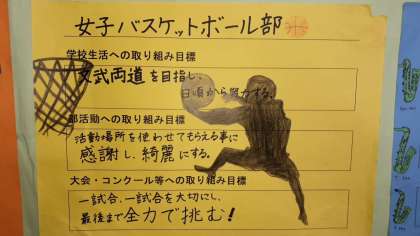 女子バスケットボール部
学校生活への取り組み目標
文武両道を目指し、
日頃から努力する。
部活動への取り組み目標
活動場所を使わせてもらえる事に
感謝し、綺麗にする。
大会・コンクール等への取り組み目標
一試合、一試合を大切にし、
最後まで全力で挑む!